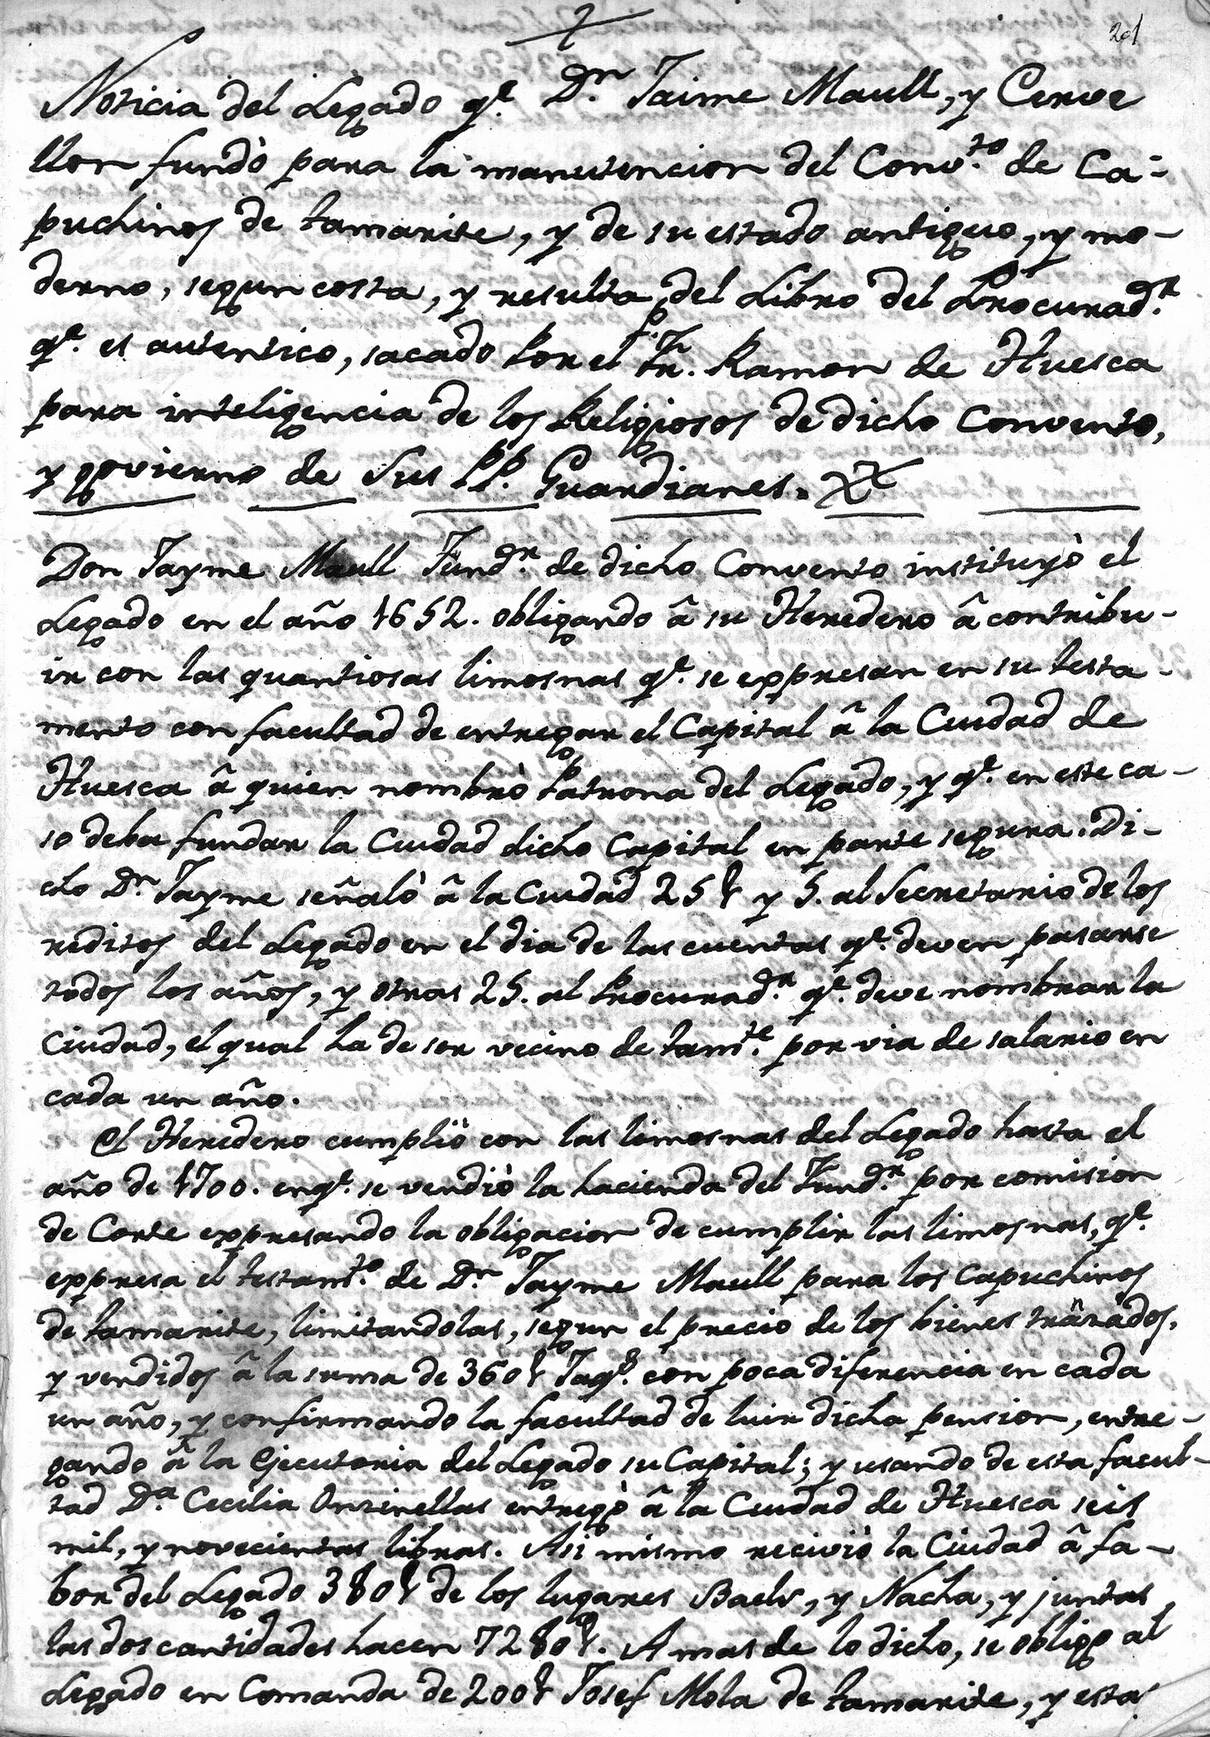 201
Noticia del Legado q.e D.n Jaime Maull, y Cerve
llon fundò para la manutencion del Conv.to de Ca-
puchinos de tamarite, y de su estado antiguo, y mo-
derno, segun costa, y resulta del Libro del Procurad.r
q.e es autentico, sacado por el P. Fr. Ramon de Huesca
para inteligencia de los Religiosos de dicho Convento,
y govierno de sus PP. Guardianes.
Don Jayme Maull Fund.r de dicho Convento instituyò el
Legado en el año 1652. obligando â su Heredero â contribu-
ir con las quantiosas limosnas q.e se expresan en su testa-
mento con facultad de entregar el Capital â la Ciudad de
Huesca â quien nombrò Patrona del Legado, y q.e en este ca-
so deba fundar la Ciudad dicho Capital en parte segura. Di-
cho D.n Jayme señalò â la Ciudad 25 y 5. al Secretario de los
reditos del Legado en el dia de las cuentas q.e deven pasarse
todos los años, y otras 25. al Procurad.r q.e deve nombrar la
Ciudad, el qual ha de ser vecino de tam.te por via de salario en
cada un año.
El Heredero cumpliò con las limosnas del Legado hasta el
año de 1700. en q.e se vendiò la hacienda del Fund.r por comision
de Corte expresando la obligacion de cumplir las limosnas, q.e
expresa el testam.to de D.n Jayme Maull para los Capuchinos
de tamarite, limitandolas, segun el precio de los bienes tranzados,
y vendidos â la suma de 360 Jaq.s con poca diferencia en cada
un año, y confirmando la facultad de luir dicha pension, entre-
gando â la Ejecutoria del Legado su Capital; y usando de esta facul-
tad D.a Cecilia Onzinellas entregò â la Ciudad de Huesca seis
mil, y novecientas libras. Asi mismo reciviò la Ciudad â fa-
bor del Legado 380 de los lugares Baels, y Nacha, y juntas
las dos cantidades hacen 7280. A mas de lo dicho, se obligo al
Legado en Comanda de 200 Josef Mola de tamarite, y esta